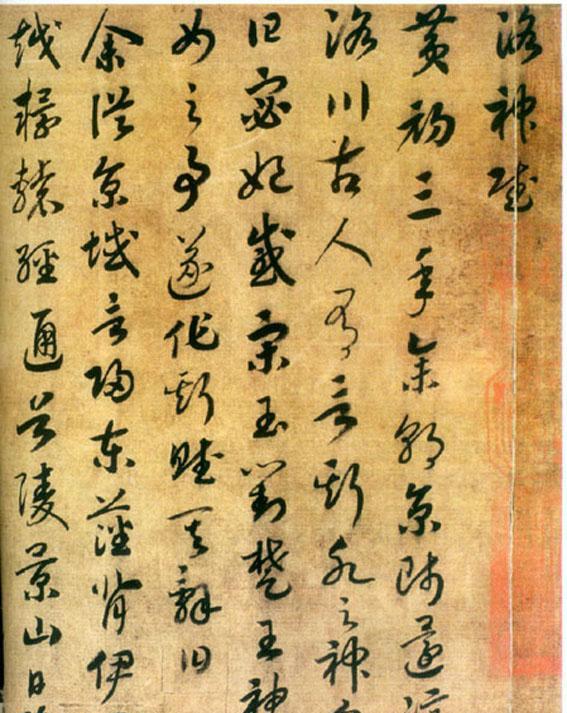 洛神賦
黃初三年余朝京師還
洛川古人有言斯水之神
曰宓妃感宋玉對楚王神
女之事遂作斯賦其辭曰
余從京域言歸東藩背伊
越轘轅經通谷陵景山日